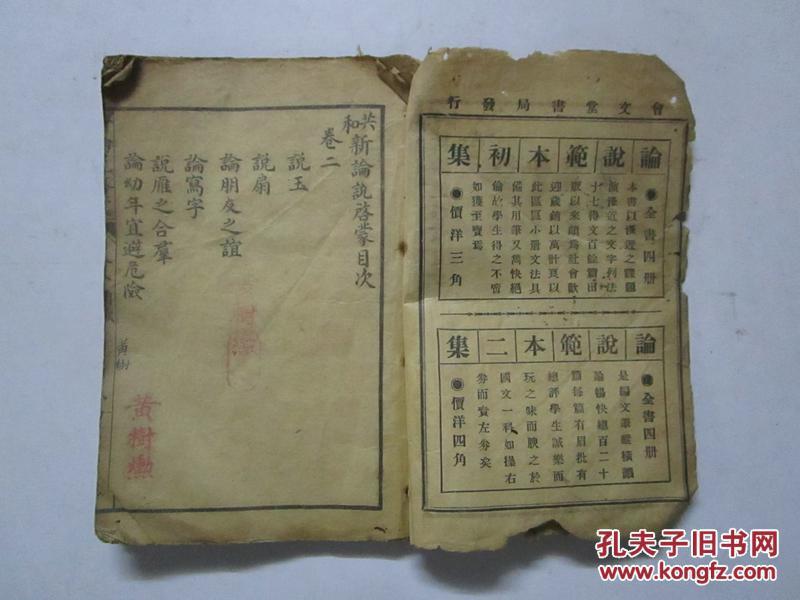 會文堂書局發行
論說範本初集
●全書四冊
本書以淺近之體題
演淺近之文字利法
十七得文百餘篇出
版以來頗爲社會歡
迎歲銷以萬計夏以
此區區小册文法具
備其用筆又萬快絕
倫故學生得之不啻
如獲至寶焉
●價洋三角
論說範本二集
●全書四冊
是編文筆縱橫議
論暢快總百二十
篇每篇有眉批有
總評學生誠樂而
玩之味而腴之於
國文一科如操右
券而責左券矣
●價洋四角
共和新論說啓蒙目次
卷二
說玉
說扇
論朋友之誼
論寫字
說雁之合羣
論幼年宜避危險
黃樹
黃樹勳
孔夫子旧书网
www.kongfz.com